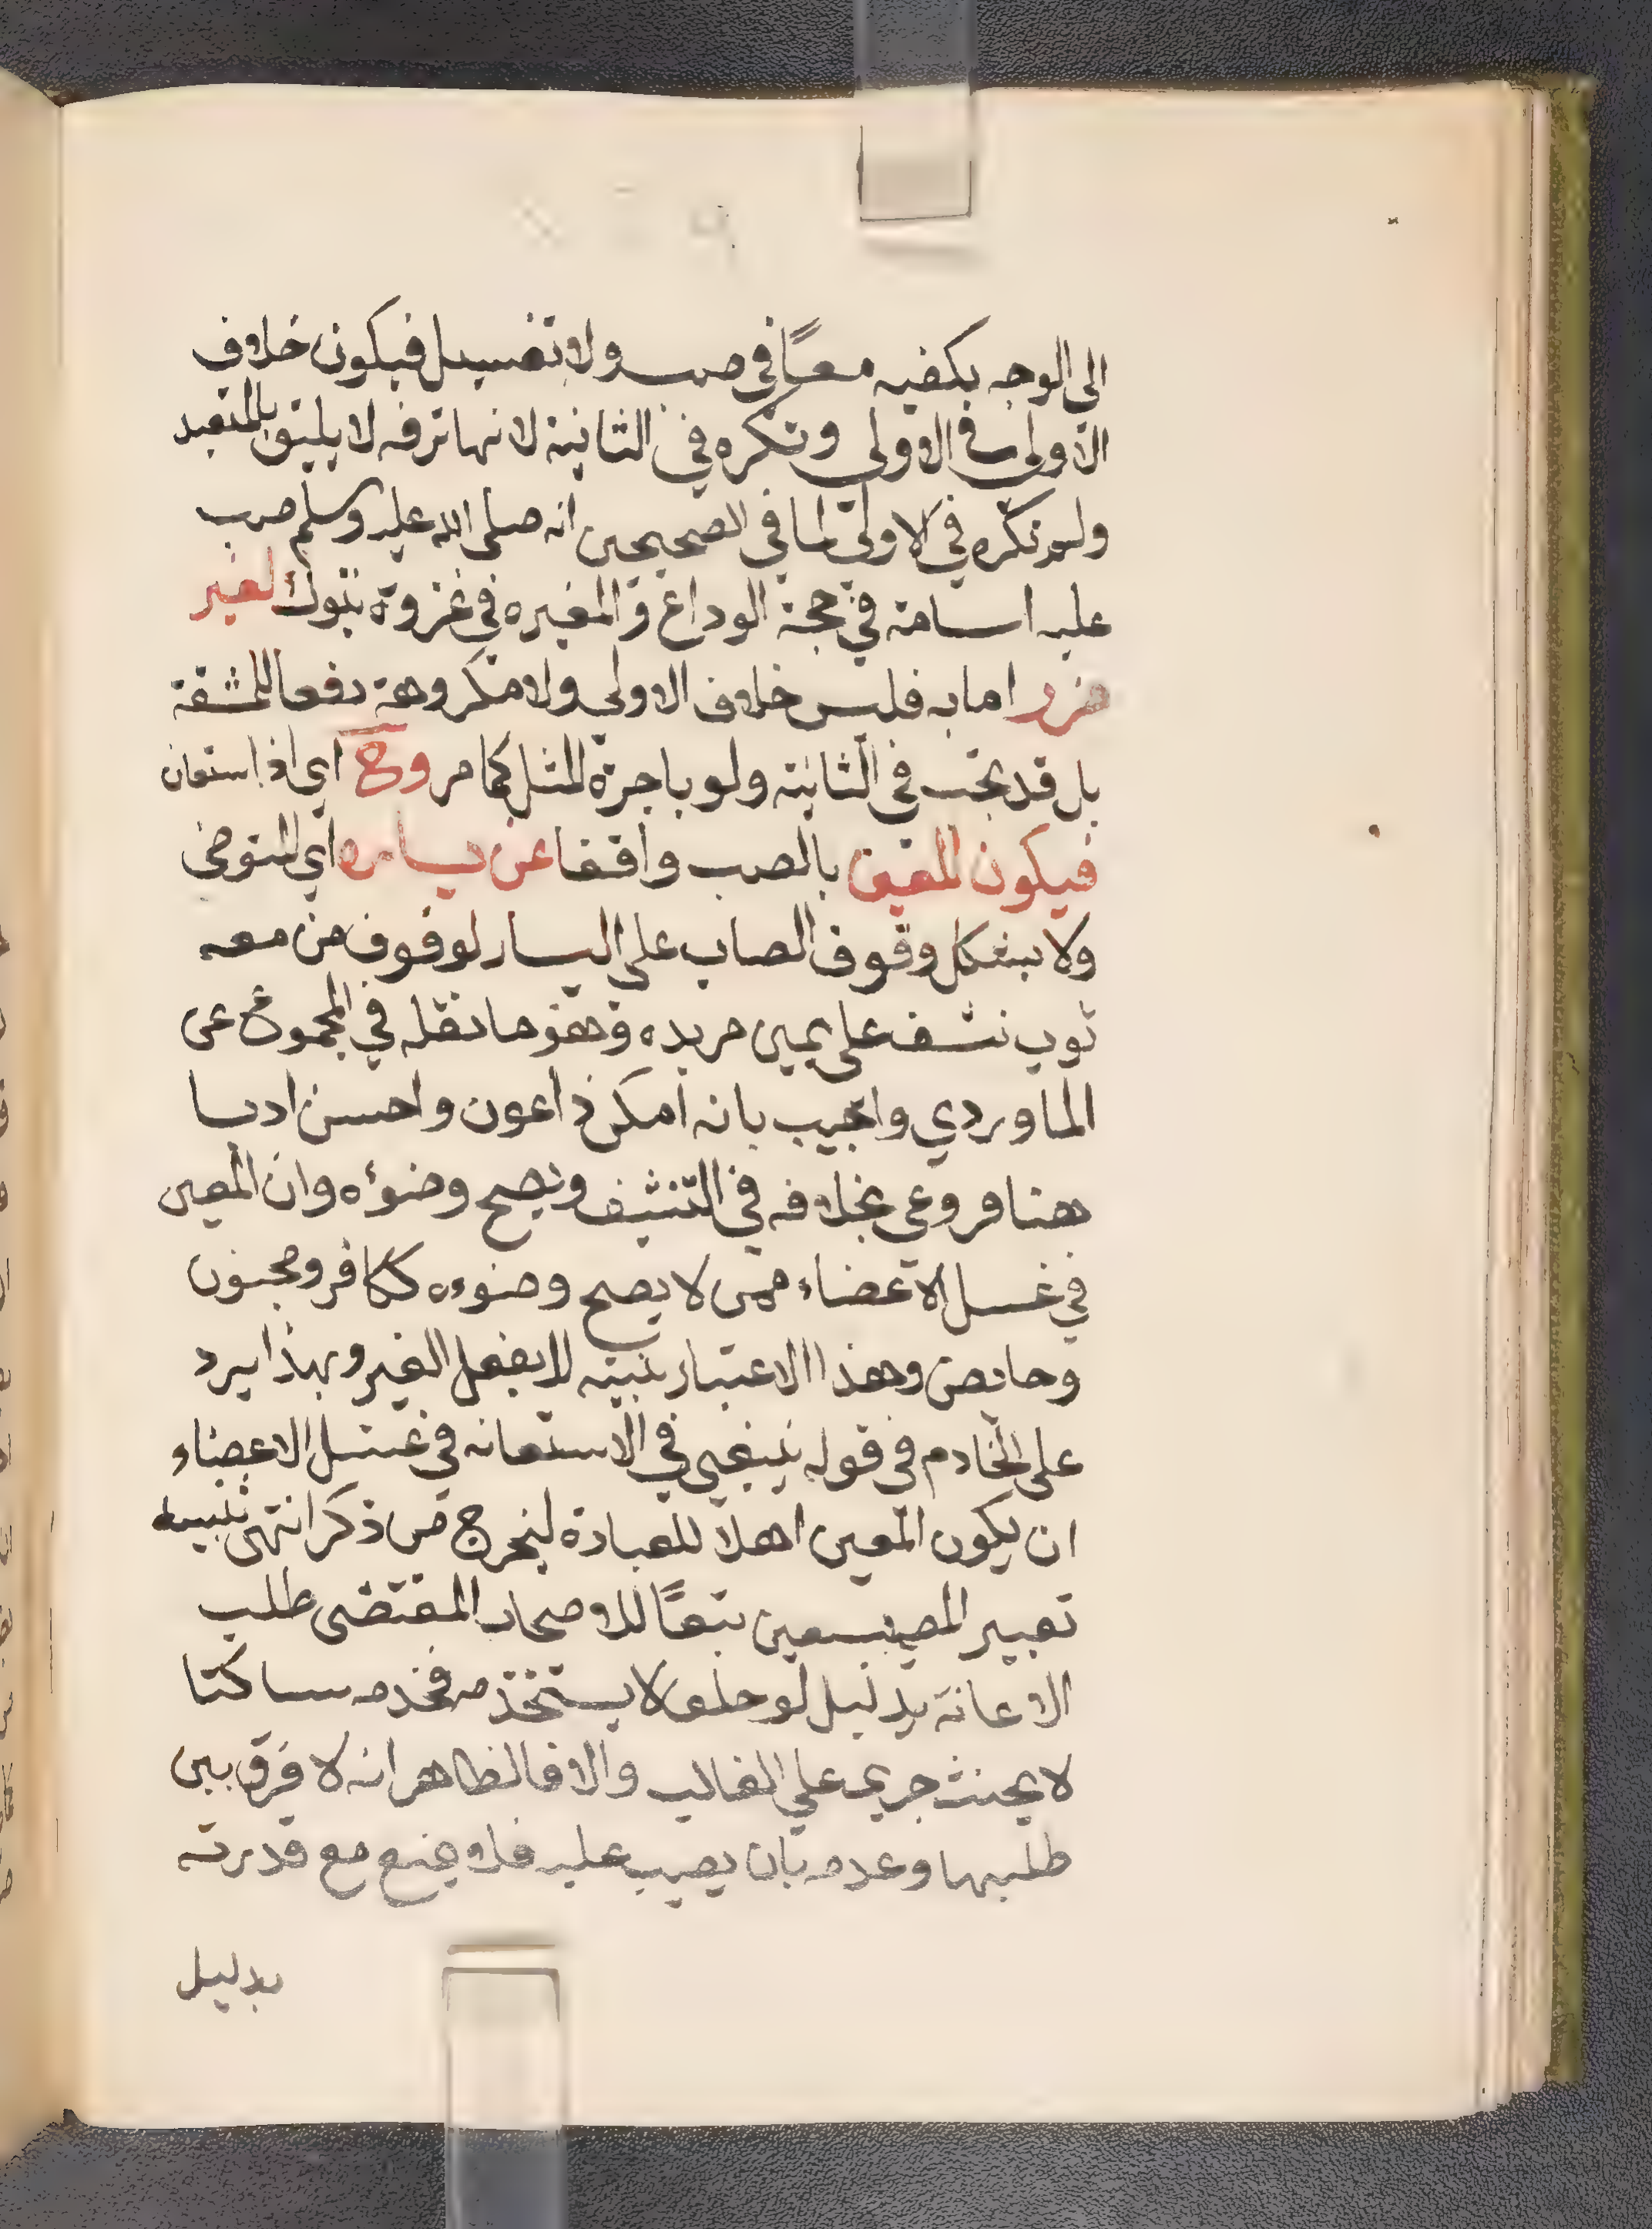 الي الوجه بكفيه معًا في صب ولا تغسيل فيكون خلاف
الاولى في الاولى وتكره في الثانية لانها ترفه لا يليق بالمتعبد
ولم تكره في الاولى لما في الصحيحين انه صلى الله عليه وسلم صب
عليه اسامة في حجة الوداع والمغيره في غزوة تبوك لغير
ضرر اما به فليس خلاف الاولى ولا مكروهة دفعا للمشقة
بل قد تجب في الثانية ولو باجرة المثل كما مر وح اي اذ استعان
فيكون المعين بالصب واقفا عن يساره اي المتوضي
ولا يشكل وقوف الصاب على اليسار لوقوف من معه
ثوب نشف على يمين مريده وهو ما نقله في المجموع عن
الماوردي واجيب بانه امكن و اعون واحسن ادبا
هنا فروعي بخلافه في التنشيف ويصح وضوءه وان المعين
في غسل الاعضاء ممن لا يصح وضوءه ككافر ومجنون
وحايض وهذا الاعتبار بنيته لا بفعل الغير وبهذا يرد
على الخادم في قوله ينبغي في الاستعانه في غسل الاعضاء
ان يكون المعين اهلا للعبادة ليخرج من ذكر انتهى تنبيه
تعبير المص تبعًا للاصحاب المقتضى طلب
الاعانة بدليل لو حلف لا يستخدمه فخدمه ساكتا
لا يحنث جرى على الغالب والا فالظاهر انه لا فرق بين
طلبها وعدمه بان يصب عليه فلا يمنع مع قدرته
بدليل